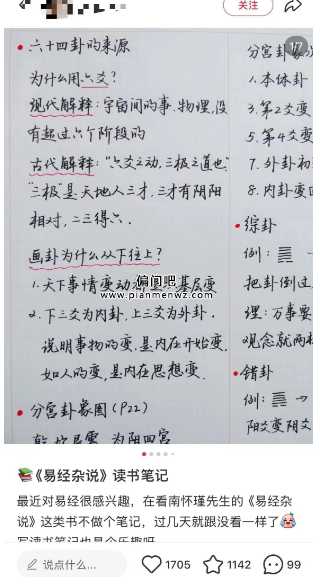 关注
1/7
六十四卦的来源
为什么用六爻?
现代解释:宇宙间的事.物理,没
有超过六个阶段的
古代解释:"六爻之动,三极之道也"
"三极"是天地人三才,三才有阴阳
相对,二三得六.
画卦为什么从下往上?
1.天下事情变动
基层变
2.下三爻为内卦,上三爻为外卦.
说明事物的变,是内在开始变,
如人的变,是内在思想变.
分宫卦象图(P22)
分宫卦
1.本体卦
3.第2爻变
5.第4爻变
7.外卦初
8.内卦变
综卦
例:
把卦倒过
理:万事要
观念就两
错卦
例: →
阳爻变阴爻
偏门吧
www.pianmenwz.com
《易经杂说》读书笔记
最近对易经很感兴趣,在看南怀瑾先生的《易经杂
说》这类书不做个笔记,过几天就跟没看一样了
写读书笔记也是个乐趣呀
说点什么...
1705
1142
99